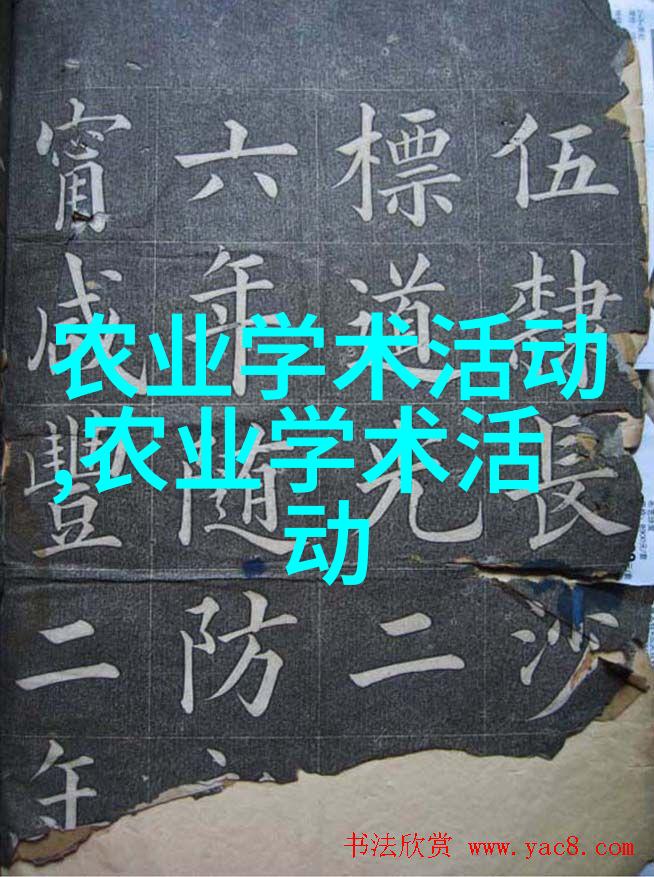 伍隸長沙
標道光二
六年隨防
甯咸豐二年
农业学术活动
,农业学术活
动
书法欣赏 www.yac8.com